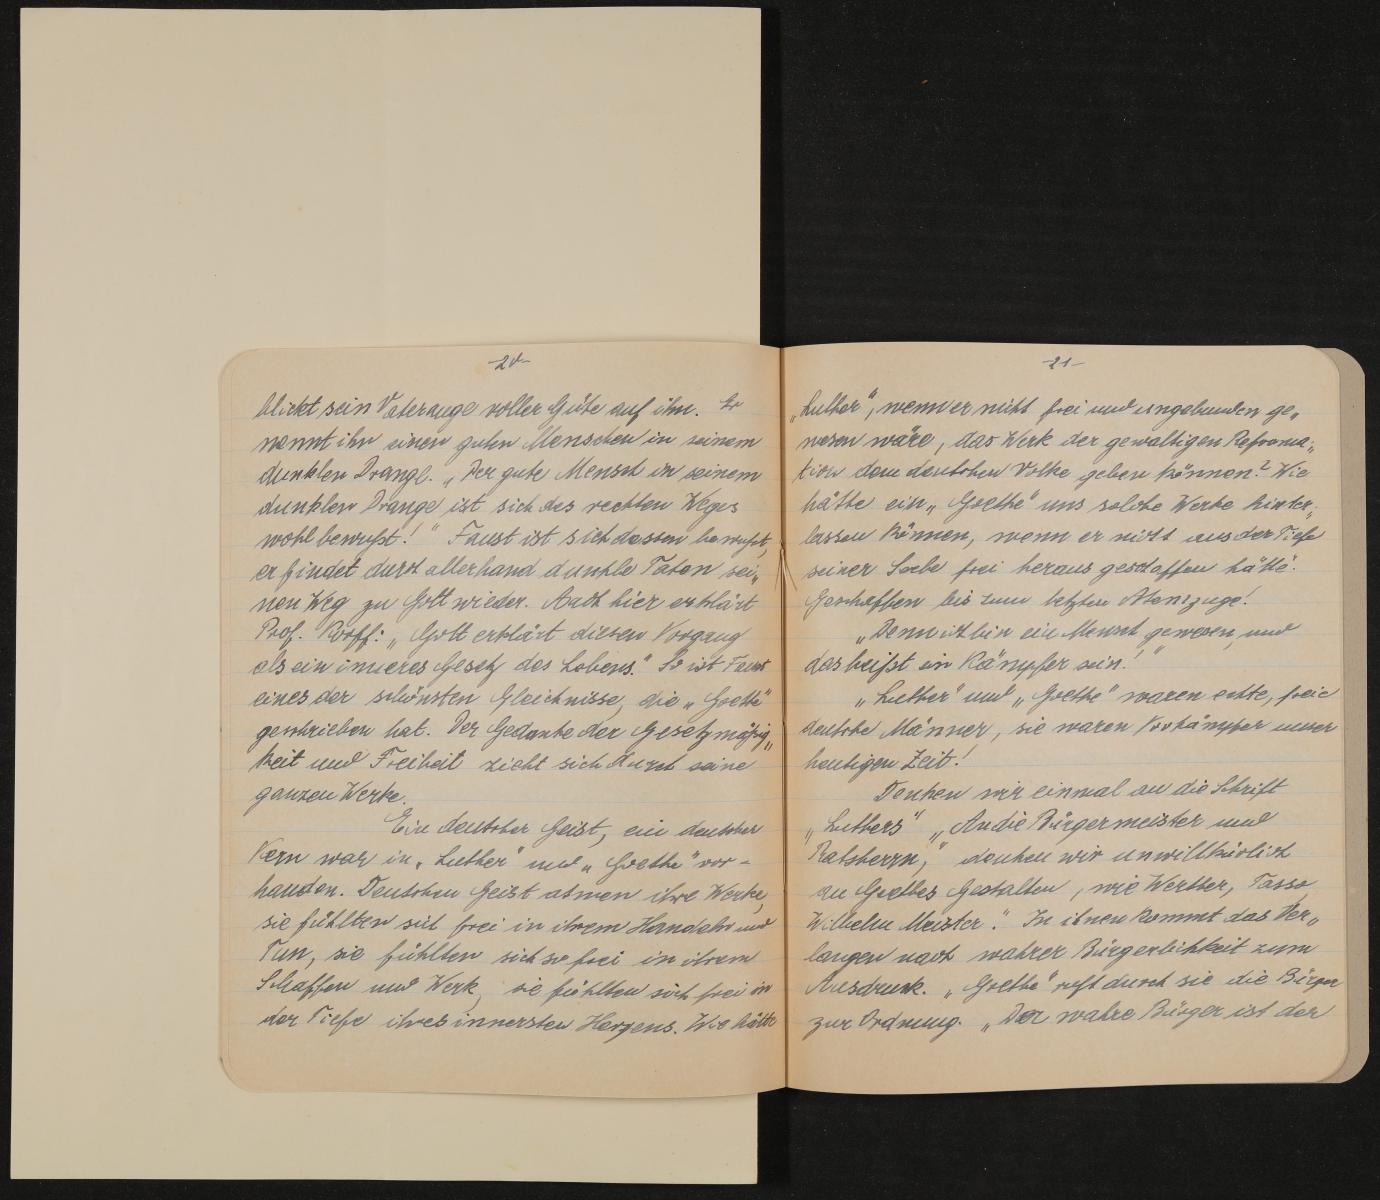 -20-
blickt sein Vaterauge voller Güte auf ihn. Er
nennt ihn einen guten Menschen in seinem
dunklen Drange. „Der gute Mensch in seinem
dunklen Drange ist sich des rechten Weges
wohl bewußt!" Faust ist sich dessen bewußt,
er findet durch allerhand dunkle Taten sei„
nen Weg zu Gott wieder. Auch hier erklärt
Prof. Korff: „Gott erklärt diesen Vorgang
als ein inneres Gesetz des Lebens." So ist Faust
eines der schönsten Gleichnisse, die „Goethe"
geschrieben hat. Der Gedanke der Gesetzmäßig„
keit und Freiheit zieht sich durch seine
ganzen Werke.
Ein deutscher Geist, ein deutscher
Kern war in „Luther" und „Goethe" vor-
handen. Deutschen Geist atmen ihre Werke,
sie fühlten sich frei in ihrem Handeln und
Tun, sie fühlten sich so frei in ihrem
Schaffen und Werk, sie fühlten sich frei in
der Tiefe ihres innersten Herzens. Wie hätte
-21-
„Luther", wenn er nicht frei und ungebunden ge„
wesen wäre, das Werk der gewaltigen Reforma„
tion dem deutschen Volke geben können? Wie
hätte ein „Goethe" uns solche Werke hinter„
lassen können, wenn er nicht aus der Tiefe
seiner Seele frei heraus geschaffen hätte.
Geschaffen bis zum letzten Atemzuge!
„Denn ich bin ein Mensch gewesen, und
das heißt ein Kämpfer sein!"
„Luther" und „Goethe" waren echte, freie
deutsche Männer, sie waren Vorkämpfer unser
heutigen Zeit!
Denken wir einmal an die Schrift
„Luthers" „An die Bürgermeister und
Ratsherrn," denken wir unwillkürlich
an Goethes Gestalten, wie Werther, Tasso,
Wilhelm Meister." In ihnen kommt das Ver„
langen nach wahrer Bürgerlichkeit zum
Ausdruck. „Goethe" ruft durch sie die Bürger
zur Ordnung. „Der wahre Bürger ist der